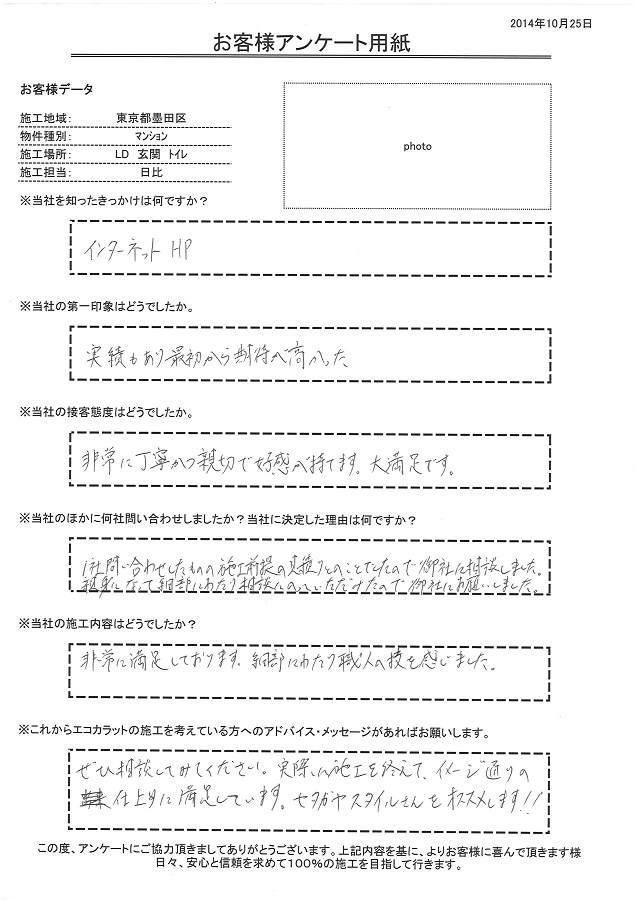 2014年10月25日
お客様アンケート用紙
お客様データ
施工地域： 東京都墨田区
物件種別： マンション
施工場所： LD 玄関 トイレ
施工担当： 日比
photo
※当社を知ったきっかけは何ですか？
インターネット HP
※当社の第一印象はどうでしたか。
実績もあり最初から期待が高かった
※当社の接客態度はどうでしたか。
非常に丁寧かつ親切で好感が持てます。大満足です。
※当社のほかに何社問い合わせしましたか？当社に決定した理由は何ですか？
1社問い合わせしたものの施工前提の見積りとのことでしたので御社に相談しました。
親身になって細部にわたり相談にのっていただけたので御社にお願いしました。
※当社の施工内容はどうでしたか？
非常に満足しております。細部にわたり職人の技を感じました。
※これからエコカラットの施工を考えている方へのアドバイス・メッセージがあればお願いします。
ぜひ相談してみてください。実際に施工を終えて、イメージ通りの
仕上りに満足しています。セタガヤスタイルさんをオススメします!!
この度、アンケートにご協力頂きましてありがとうございます。上記内容を基に、よりお客様に喜んで頂きます様
日々、安心と信頼を求めて100％の施工を目指して行きます。